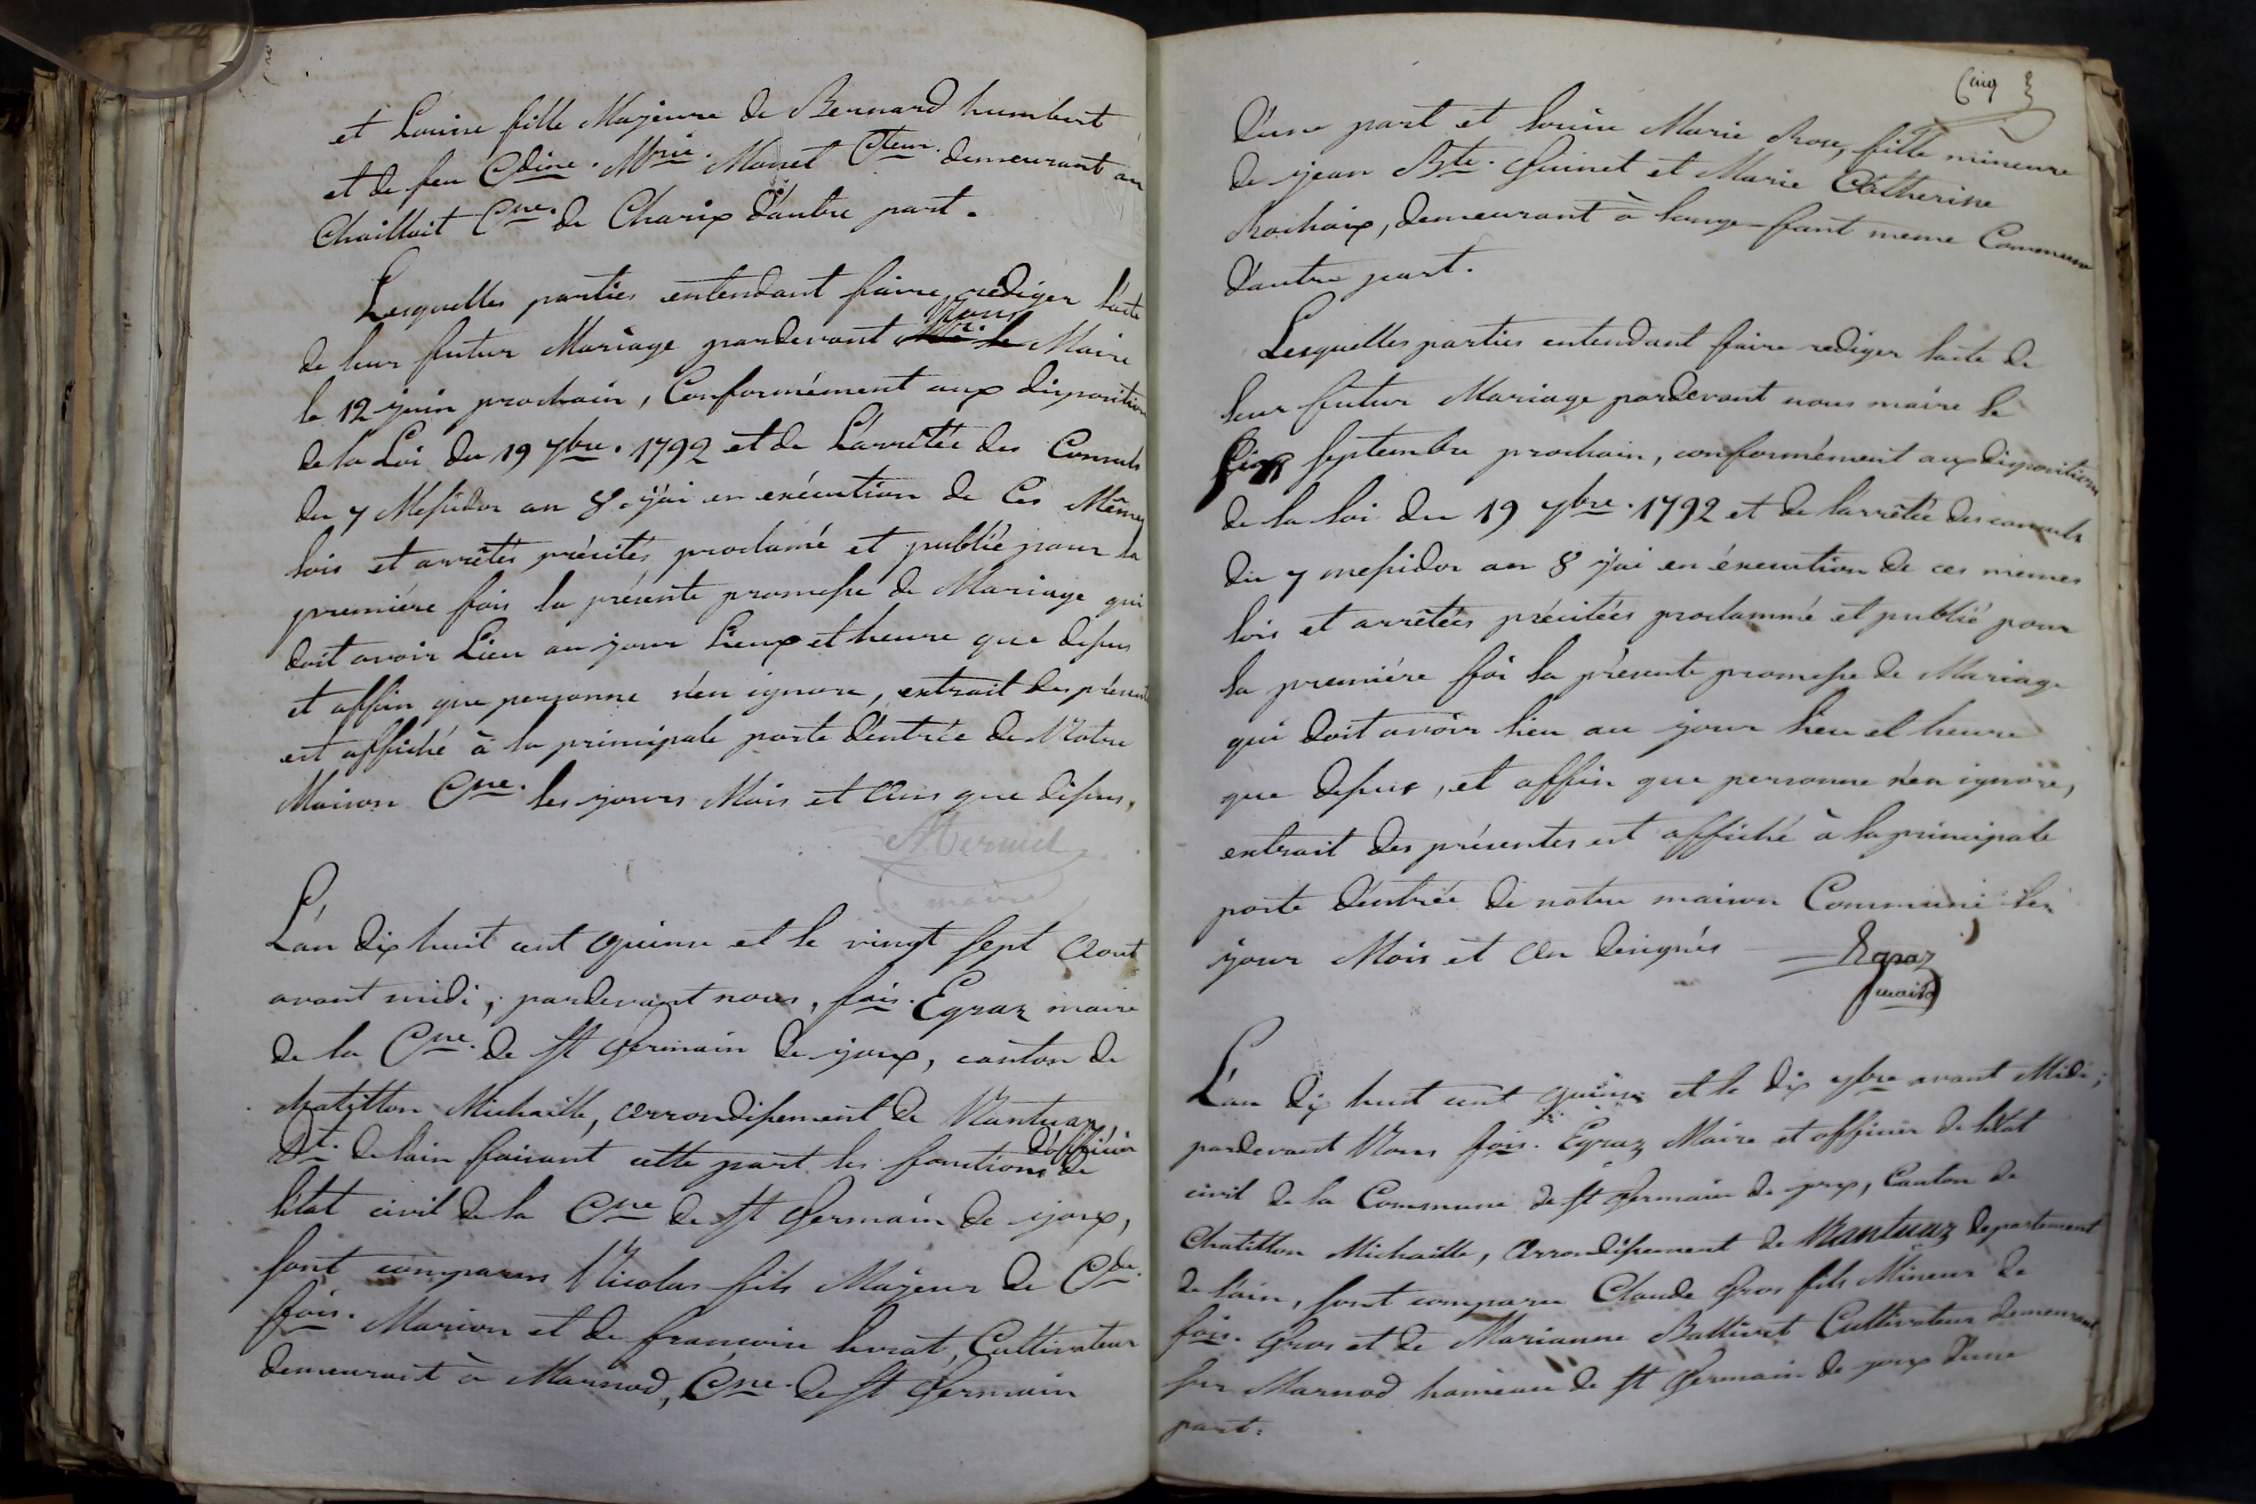 et Louise fille Majeure de Bernard humbert
et de feu Cdine. Mrie. Monet Cteur. demeurant au
Chailloit Cne. de Charix d'autre part.
Lesquelles parties entendant faire rediger l'acte
de leur futur Mariage pardevant Nous Maire
le 12 juin prochain, Conformément aux disposition
de la Loi du 19 7bre. 1792 et de L'arrêtée des Consuls
du 7 Messidor an 8. j'ai en exécution de Ces Mêmes
lois et arrêtés précités proclamé et publié pour la
première fois la présente promesse de Mariage qui
doit avoir Lieu au jour Lieux et heure que dessus
et affin que personne n'en ignore, extrait des présent
est affiché à la principale porte d'entrée de Notre
Maison Cne. les jours Mois et Ans que dessus.
maire
L'an dix huit cent quinze et le vingt sept Aout
avant midi, pardevant nous, fois. Egraz maire
de la Cne. de St Germain de joux, canton de
chatillon Michaille, arrondissement de Nantuaz,
Dt. de lain faisant cette part les fonctions d'officier de
l'état civil de la Cne de St Germain de joux,
sont comparus Nicolas fils Majeur de Cde.
fois. Marion et de francoise livrat, Cultivateur
demeurant à Marnod, Cne. de St Germain
Cinq
d'une part et louise Marie Rose, fille mineure
de jean Bte. Guinet et Marie Catherine
Rochaix, demeurant à longe-fant meme Commune
d'autre part.
Lesquelles parties entendant faire rediger l'acte de
leur futur Mariage pardevant nous maire le
Six septembre prochain, conformément aux dispositions
de la loi du 19 7bre. 1792 et de l'arrêtée des consuls
du 7 messidor an 8 j'ai en éxecution de ces memes
lois et arrêtées précitées proclammé et publié pour
la première foi la présente promesse de Mariage
qui doit avoir lieu au jour lieu et heure
que dessus, et affin que personne n'en ignore,
extrait des présentes est affiché à la principale
porte d'entrée de notre maison Commune les
jour Mois et An designés Egraz
maire
L'an dix huit cent quinze et le dix 7bre avant Midi;
pardevant Nous fois. Egraz Maire et officier de l'état
civil de la Commune de St Germain de joux, Canton de
Chatillon Michaille, Arrondissement de Nantuaz departement
de lain, sont comparu Claude Gros fils Mineur de
fois. Gros et de Marianne Ballivet Cultivateur demeurant
sur Marnod hameau de St Germain de joux d'une
part.